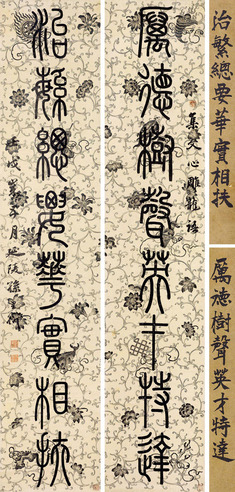 厲德樹聲英才特達
集文心雕龍語
治繁總要華實相扶
治繁總要華實相扶
厲德樹聲英才特達